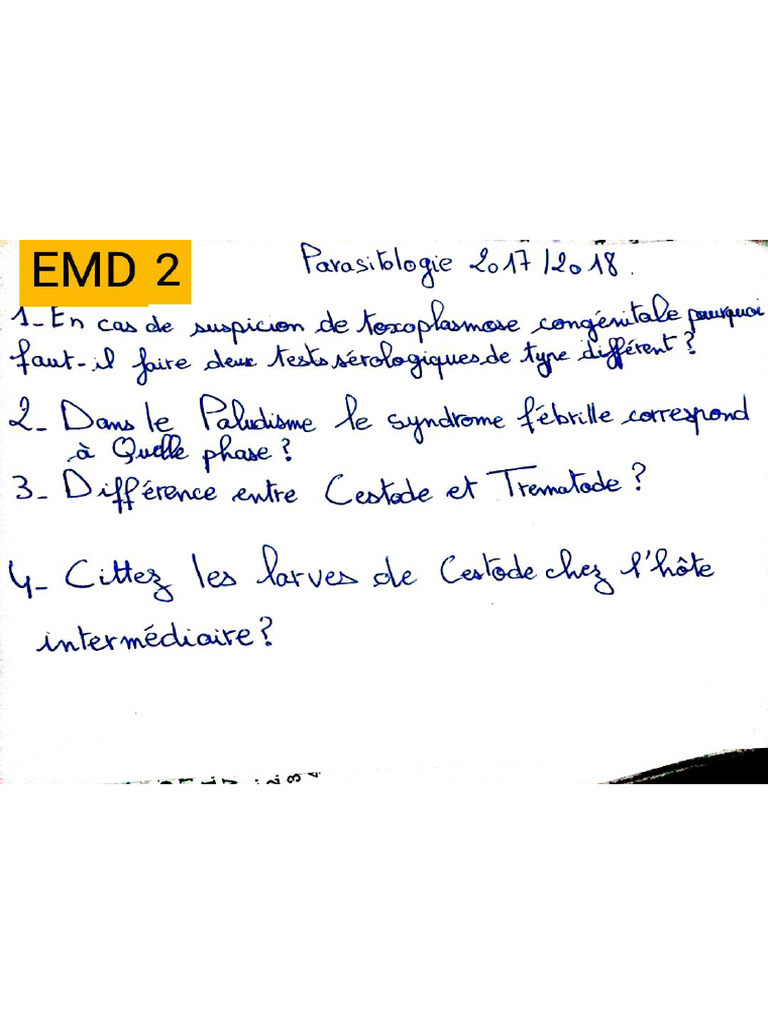 EMD 2
Parasitologie 2017/2018.
1- En cas de suspicion de toxoplasmose congénitale pourquoi
faut-il faire deux tests sérologiques de type différent?
2- Dans le Paludisme le syndrome fébrille correspond
à Quelle phase?
3- Différence entre Cestode et Trematode?
4- Cittez les larves de Cestode chez l'hôte
intermédiaire?